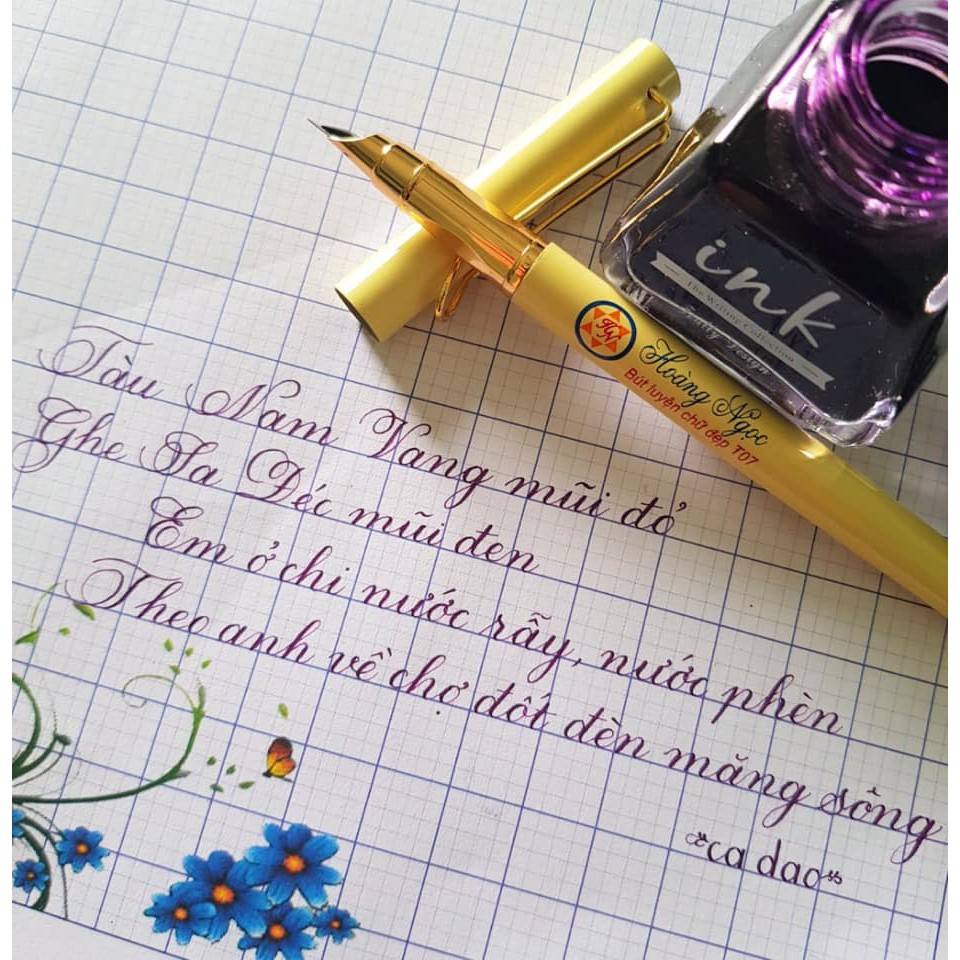 ink
The Writing Collection
HN
Hoàng Ngọc
Bút luyện chữ đẹp T07
Tàu Nam Vang mũi đỏ
Ghe Sa Đéc mũi đen
Em ở chi nước rẫy, nước phèn
Theo anh về chợ đốt đèn măng sông
"ca dao"